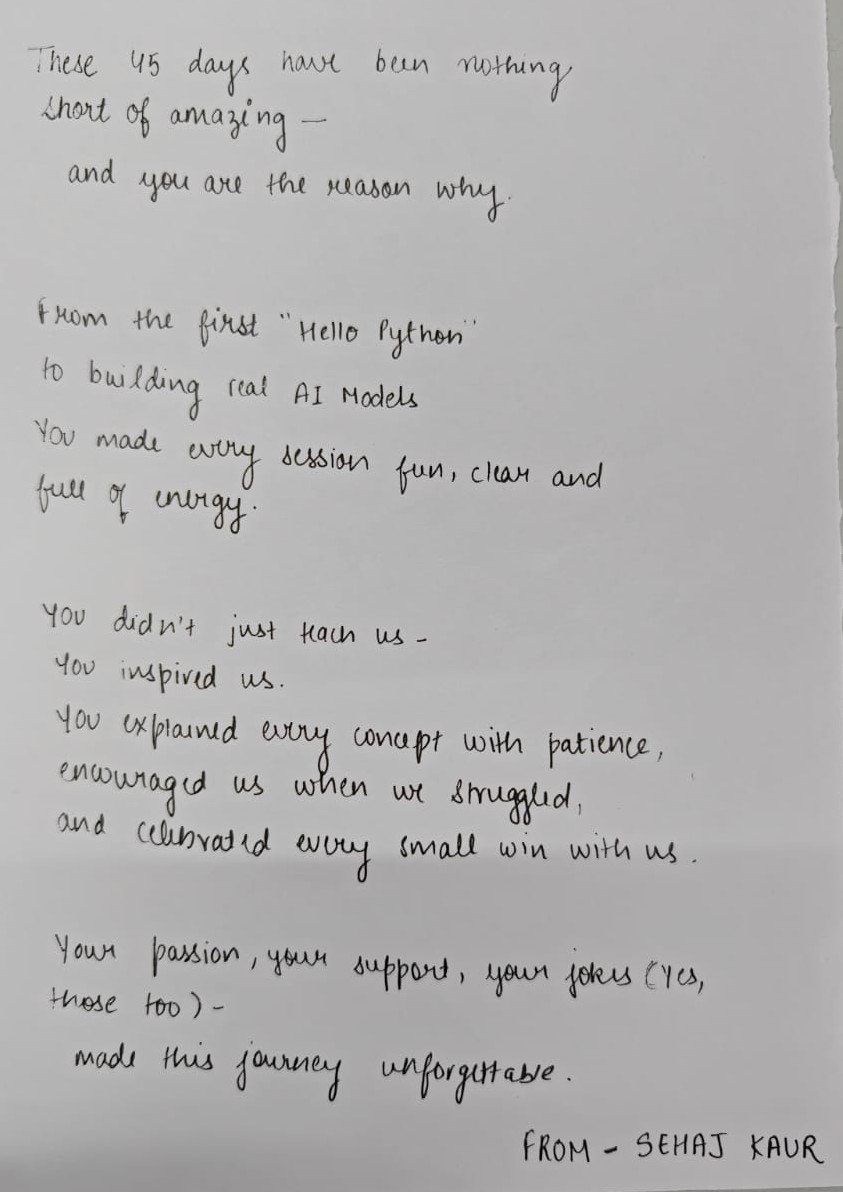 These 45 days have been nothing
short of amazing —
and you are the reason why.
From the first "Hello Python"
to building real AI Models
You made every session fun, clear and
full of energy.
You didn't just teach us -
You inspired us.
You explained every concept with patience,
encouraged us when we struggled,
and celebrated every small win with us.
Your passion, your support, your jokes (Yes,
those too) -
made this journey unforgettable.
FROM - SEHAJ KAUR